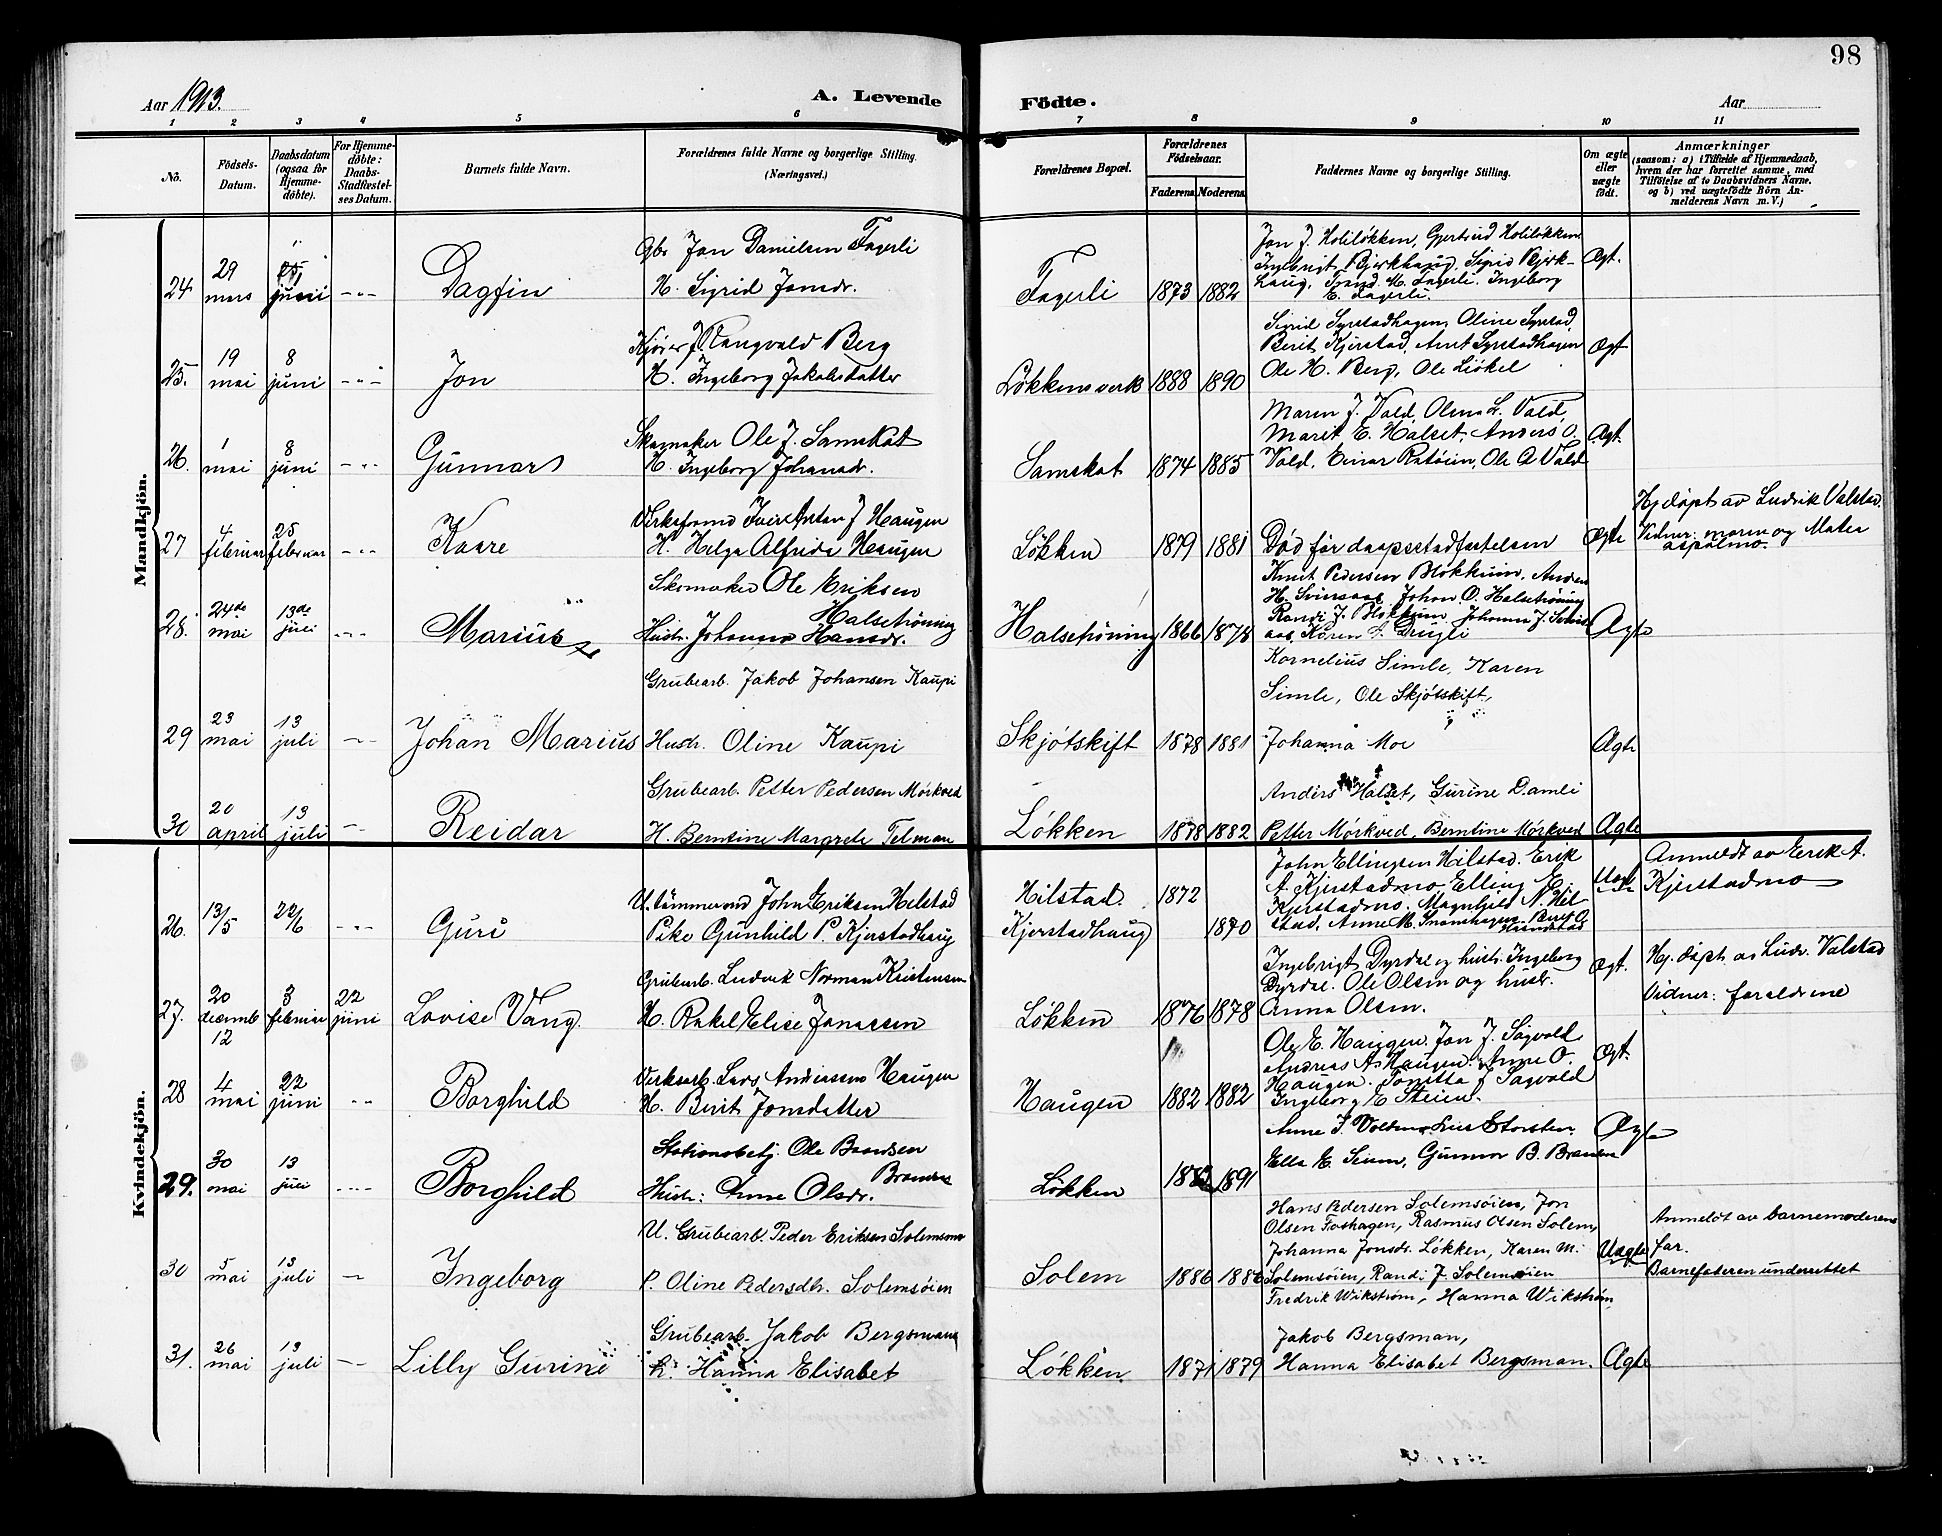 98
Aar 1913.
A. Levende
Födte.
Aar
1 2 3 4 5 6 7 8 9 10 11
No.
Födsels-Datum.
Daabsdatum (ogsaa for Hjemme-döbte).
For Hjemme-döbte: Daabs-Stadfæstelses Datum.
Barnets fulde Navn.
Forældrenes fulde Navne og borgerlige Stilling.
(Næringsvei.)
Forældrenes Bopæl.
Forældrenes Födselsaar.
Faderens. Moderens.
Faddernes Navne og borgerlige Stilling.
Om ægte eller uægte födt.
Anmærkninger
(saasom: a) i Tilfælde af Hjemmedaab,
hvem der har forrettet samme, med
Tilföielse af to Daabsvidners Navne.
og b) ved uægtefödte Börn An-
melderens Navn m.V.)
Mandkjön.
24 29 mars juni Dagfin
Gbr Jon Danielsen Fagerli
H. Sigrid Jonsdr.
Fagerli 1873 1882
Jon J. Holiløkken, Gjertrud Holiløkken
Ingebrigt Bjerkhaug, Sigrid Bjerk-
haug, Trond M. Fagerli. Ingeborg
E. Fagerli.
Ægt.
25. 19 mai 8 juni Jon
Kjører J. Rangvald Berg
H. Ingeborg Jakobsdatter
Løkkens verk 1888 1890
Sigrid Syrstadhagen, Oline Syrstad,
Berit Kjerstad, Arnt Syrstadhagen
Ole H. Berg, Ole Løkel
Ægt
26. 1 mai 8 juni Gunnar
Skomaker Ole J. Samskot
H. Ingeborg Johansdr.
Samskot 1874 1885
Maren J. Vold, Olma L. Vold,
Marit E. Halset, Anders O.
Vold, Einar Ratøien, Ole O. Vold
Ægt.
27 4 februar 25 februar Kaare
Verksformd Iver Anton J Haugen
H. Helga Alfrida Haugen
Løkken 1879 1881
Død før daapsstadfestelsen
Ægte
Hj.døpt av Ludvik Valstad.
Vidner: maren og Matea
aspølmo.
28. 24de mai 13de juli Marius
Skomaker Ole Eriksen
Halsetrøning
Hustr. Johanna Hansdr.
Halsetrøning 1866 1878
Knut Pedersen Blokkum, Anders
H. Sviersaas, Johan O. Halsetrøning
Randi J. Blokkum, Johanna J. Sviers
aas, Karen S. Drugli
Ægte
29 23 mai 13 juli Johan Marius
Grubearb. Jakob Johansen Kaupi
Hustr. Oline Kaupi
Skjøtskift 1878 1881
Kornelius Simle, Karen
Simle, Ole Skjøtskift,
Johanna Moe
Ægte
30 20 april 13 juli Reidar
Grubearb. Petter Pedersen Mørkved
H. Berntine Margrete Telman
Løkken 1878 1882
Anders Halset, Gurine Damli
Petter Mørkved, Berntine Mørkved
Ægte
Kvindekjön.
26. 13/5 22/6 Guri
U. tømmermd John Eriksen Hilstad
Pike Gunhild P. Kjerstadhaug
Hilstad. 1872
Kjerstadhaug 1890
John Ellingsen Hilstad. Erik
A. Kjerstadmo, Elling E.
Kjerstadmo. Magnhild N. Hil
stad, Anne M.
Uægt
Anmeldt av Eerik A.
Kjerstadmo
27. 20 decemb 12 3 februar 22 juni Lovise Vang.
Grubearb. Ludvik Norman Kristensen
H. Rakel Elise Jonassen
Løkken 1876 1878
Ingebrigt Dyrdal og hustr. Ingeborg
Dyrdal. Ole Olsen og hustr.
Anna Olsen.
Ægt.
Hj. døpt av Ludv. Valstad
Vidner: forældrene
28 4 mai 22 juni Borghild
Verksarb. Lars Andreassen Haugen
H. Berit Jonsdatter
Haugen 1882 1882
Ole E. Haugen. Jon J. Sagvold
Andreas A. Haugen. Anne O.
Haugen. Tonetta J Sagvold
Ingeborg E Steien.
Ægt.
29. 30 mai 13 juli Borghild
Stationsbetj. Ole Berntsen
Hustr: Anne Olsdr.
Løkken 1882 1891
Anne J. Volden, Storsten.
Ella E. Seium, Gunnar B.
Ægte
30 5 mai 13 juli Ingeborg
U. Grubearb. Peder Eriksen Solemsmo
P. Oline Pedersdtr. Solemsøien
Solem 1886 1886
Hans Pedersen Solemsøien, Jon
Olsen Foshagen, Rasmus Olsen Solem,
Johanna Jonsdr. Løkken, Karen M.
Solemsøien, Randi J. Solemsøien
Uægte
Anmeldt av barnemoderens
far.
Barnefaderen underrettet
31. 26 mai 13 juli Lilly Gurine
Grubearb. Jakob Bergsmann
h. Hanna Elisabet
Løkken 1871 1879
Fredrik Wikstrøm, Hanna Wikstrøm
Jakob Bergsman,
Hanna Elisabet Bergsman.
Ægte